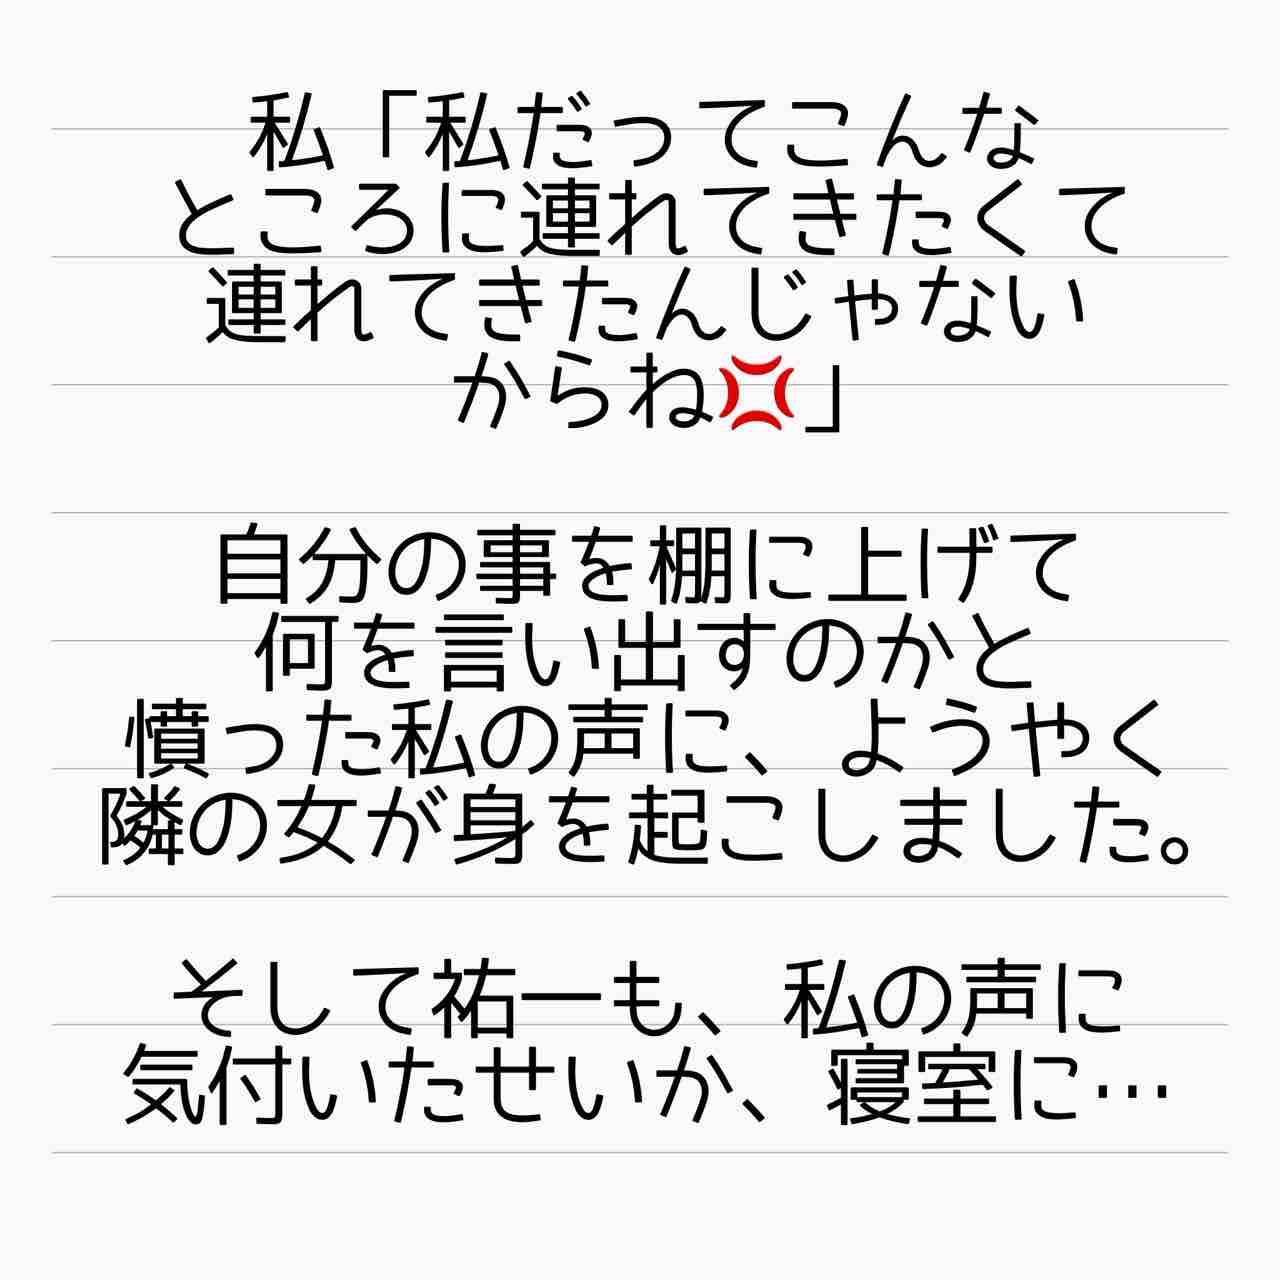 私「私だってこんな
ところに連れてきたくて
連れてきたんじゃない
からね💢」
自分の事を棚に上げて
何を言い出すのかと
憤った私の声に、ようやく
隣の女が身を起こしました。
そして祐一も、私の声に
気付いたせいか、寝室に…